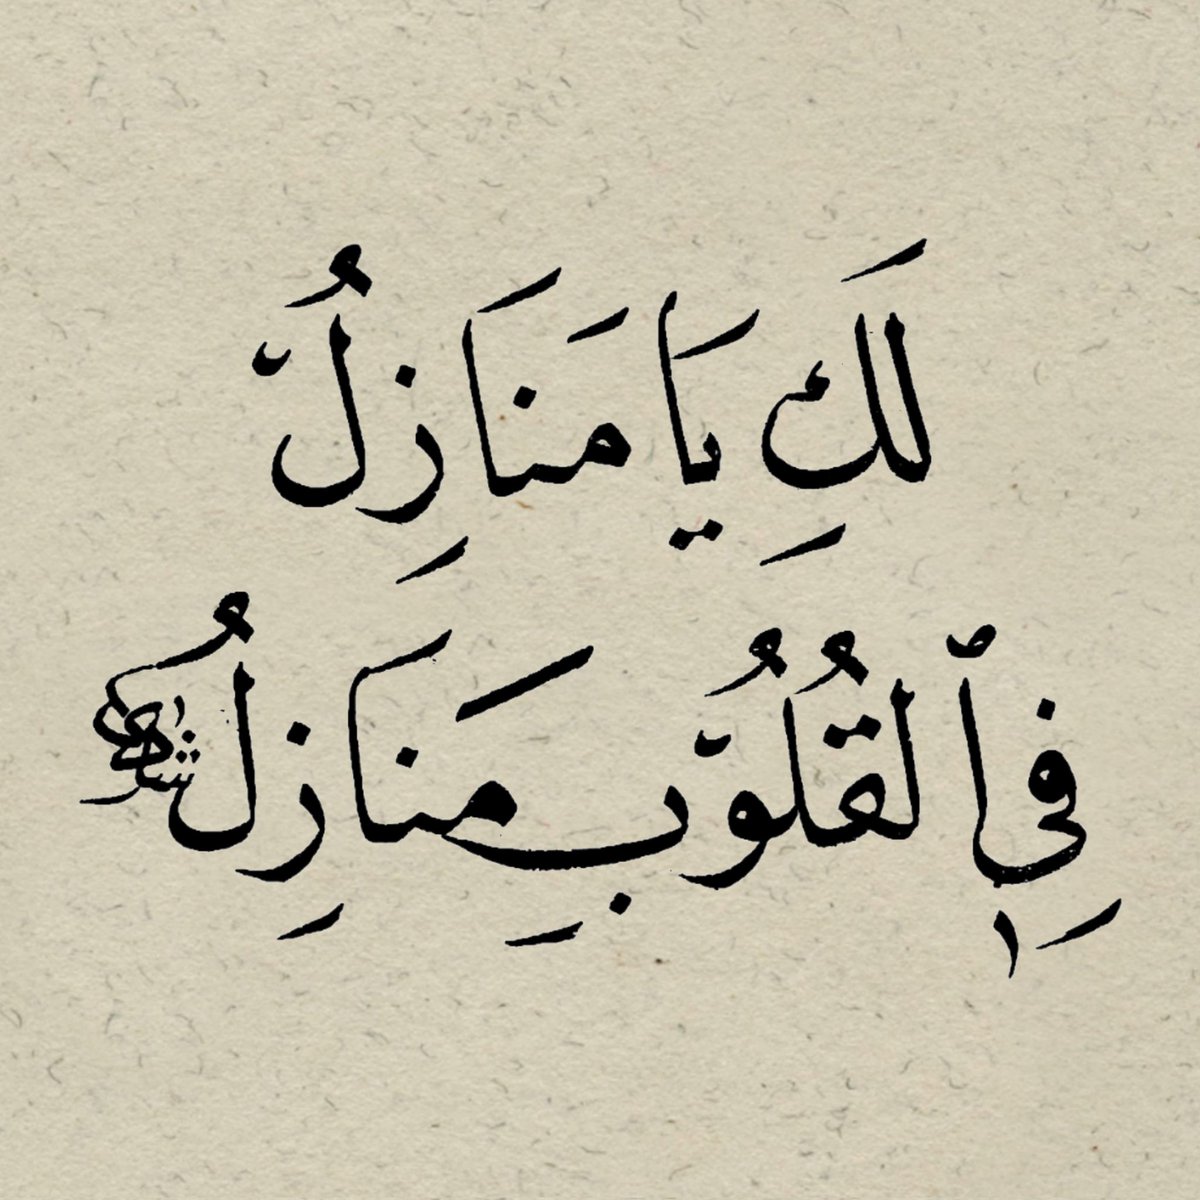 لَكِ يَا مَنَازِلُ
فِي ٱلْقُلُوبِ مَنَازِلُ